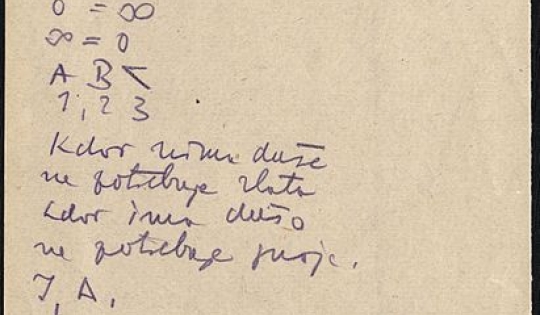 0 = ∞
∞ = 0
A B <
1, 2 3
Kdor nima duše
ne potrebuje zlata
kdor ima dušo
ne potrebuje gnoja.
I, A,